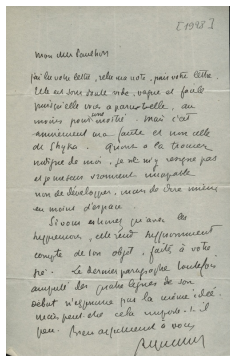 [1928]
mon cher Paulhan
J'ai lu votre lettre, relu ma note, puis votre lettre.
Elle est sans doute vide, vague et
puisqu'elle vous a paru telle, au
moins pour une moitié. Mais c'est
ma faute et non celle
de Quant à la trouver
indigne de moi, je ne m'y
et je me sens vraiment incapable
non de développer, mais de dire mieux
en moins d'espace.
Si vous estimez qu'avec les
suppressions, elle rend
compte de son objet, faites à votre
gré. Le dernier paragraphe toutefois
amputé des quatre lignes de son
début n'exprime pas la même idée.
mais peut-être cela importe-t-il
peu. Bien à vous